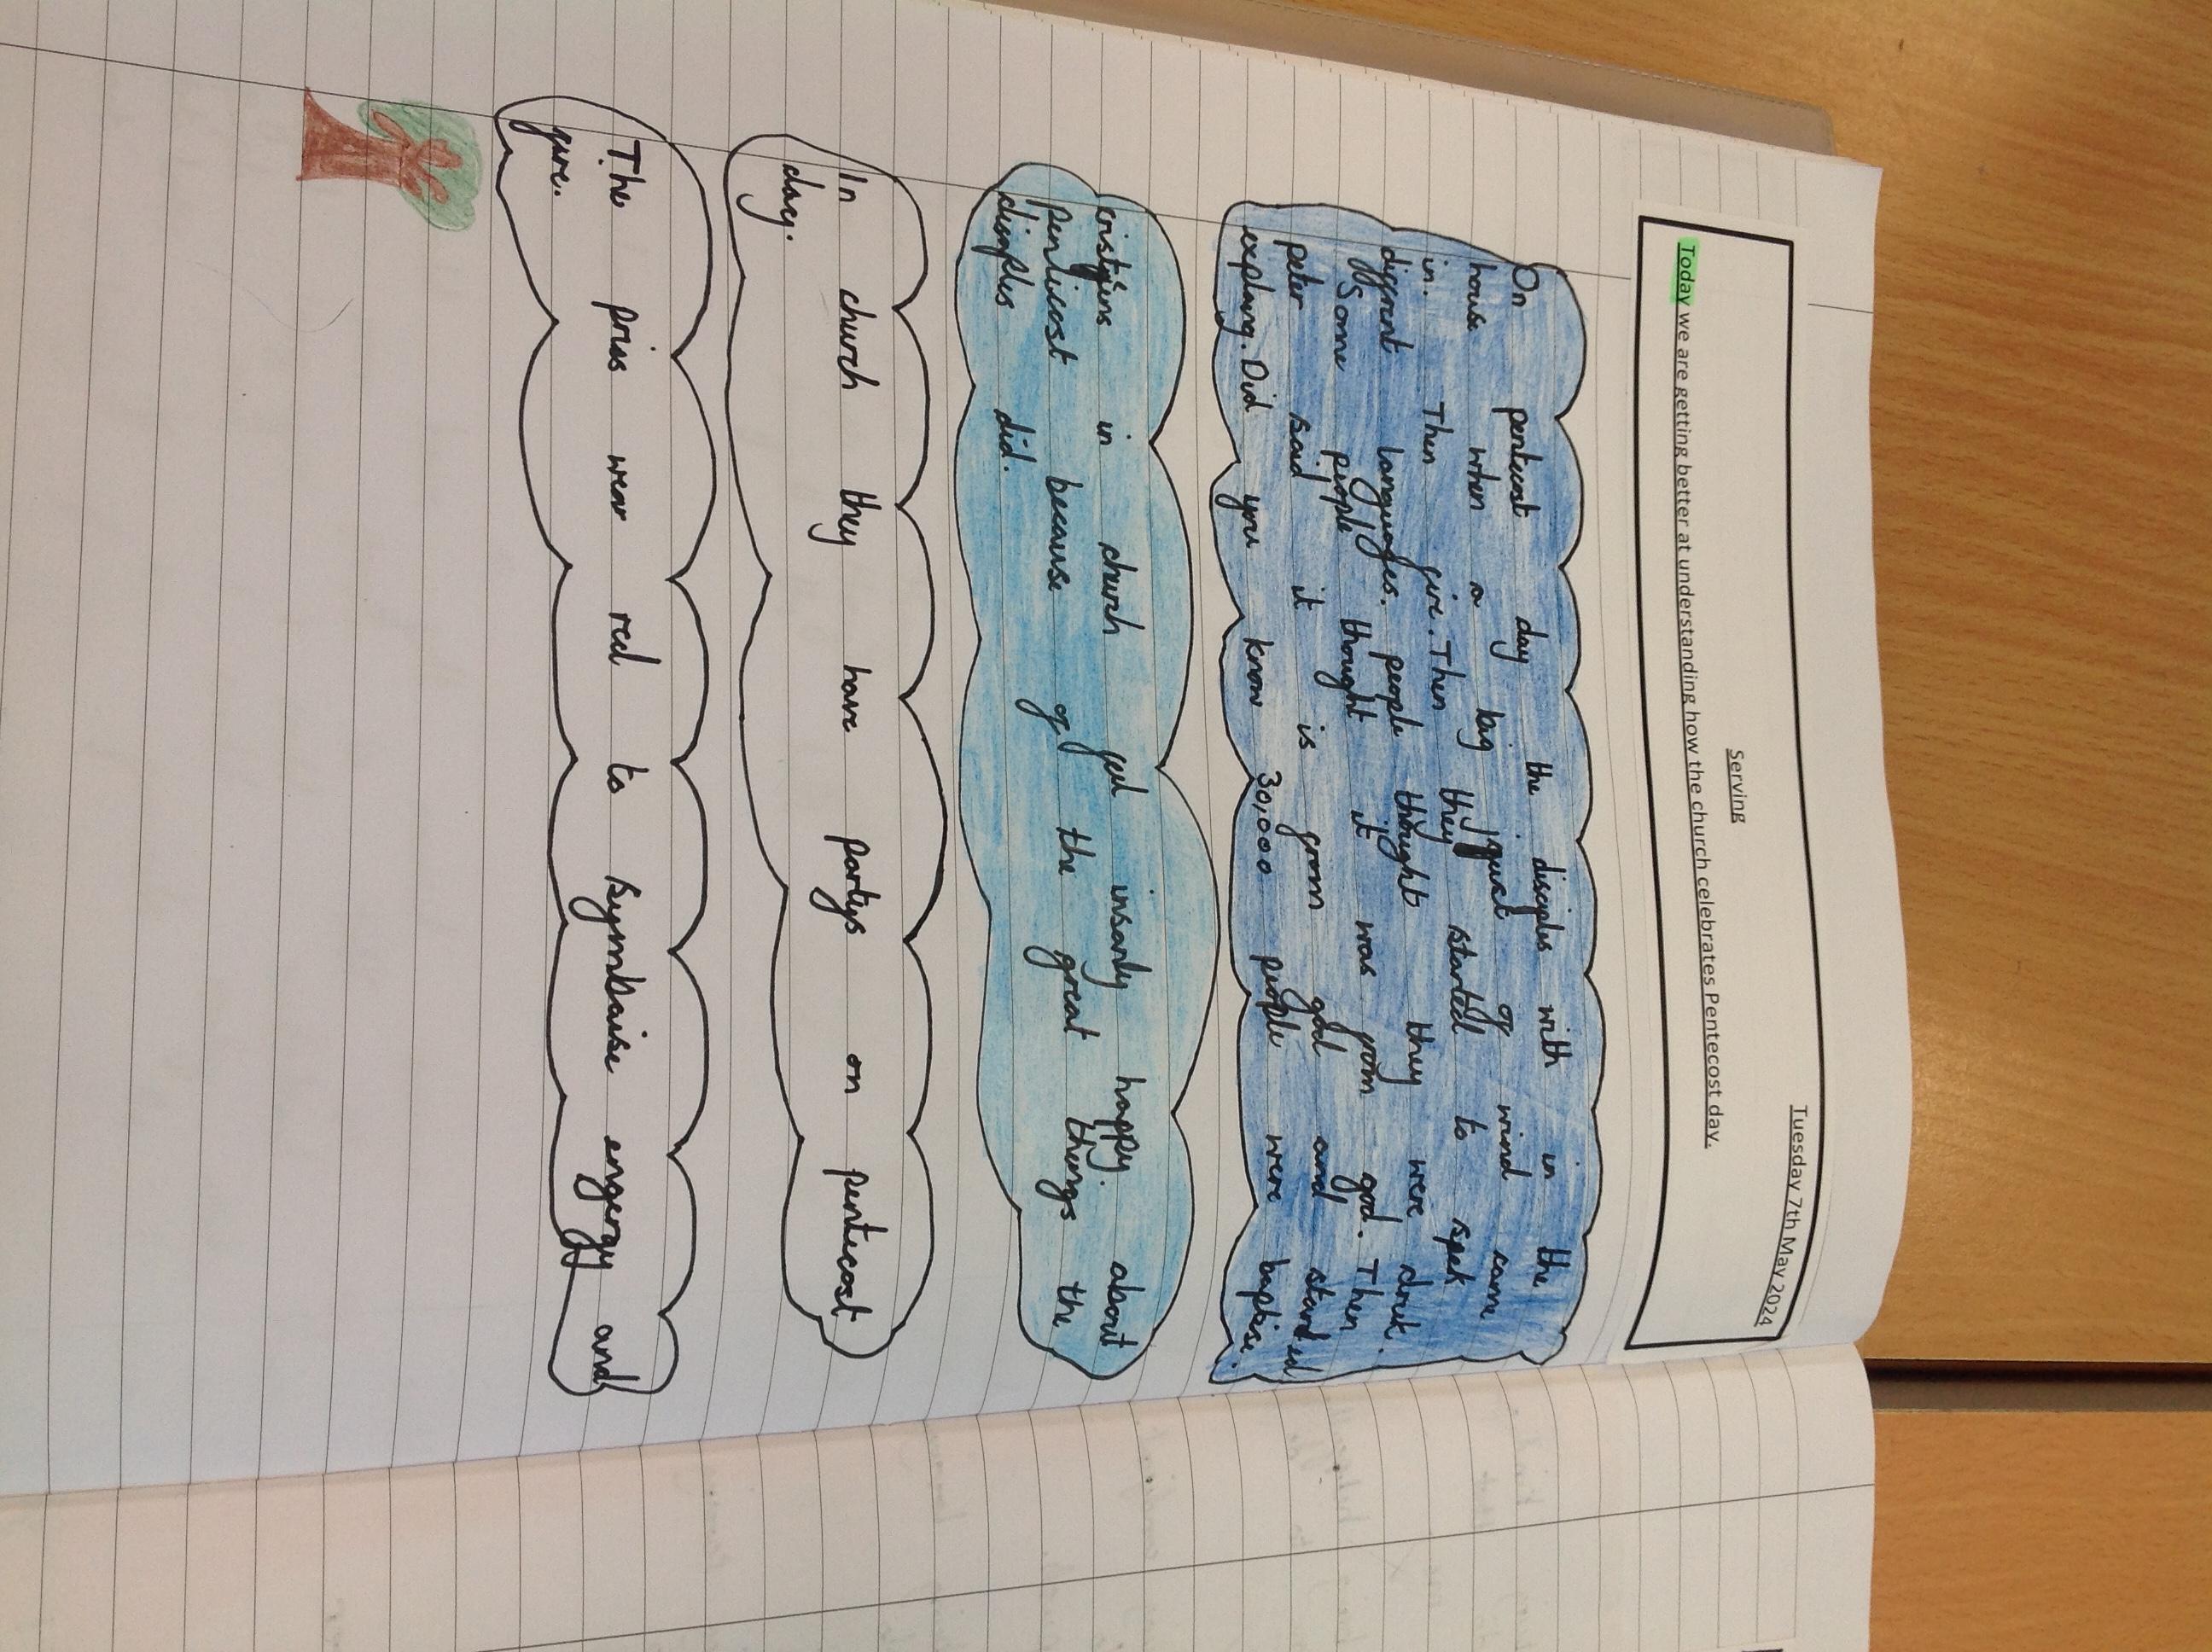 Tuesday 7th May 2024
Serving
Today we are getting better at understanding how the church celebrates Pentecost day.
On pentecost day the disciples with in the
house when a big gust of wind came
in. Then fire. Then they started to spek
diffrent languages. people thought they were druk.
Some people thought it was from god. Then
peter said it is from god and started
explang. Did you know 30,000 people were baptise.
cristjins in church feel insanly happy. about
penticost because of the great things the
disiples did.
In church they have partys on pentecost
day.
The priss wear red to symbaise engergy and
fire.